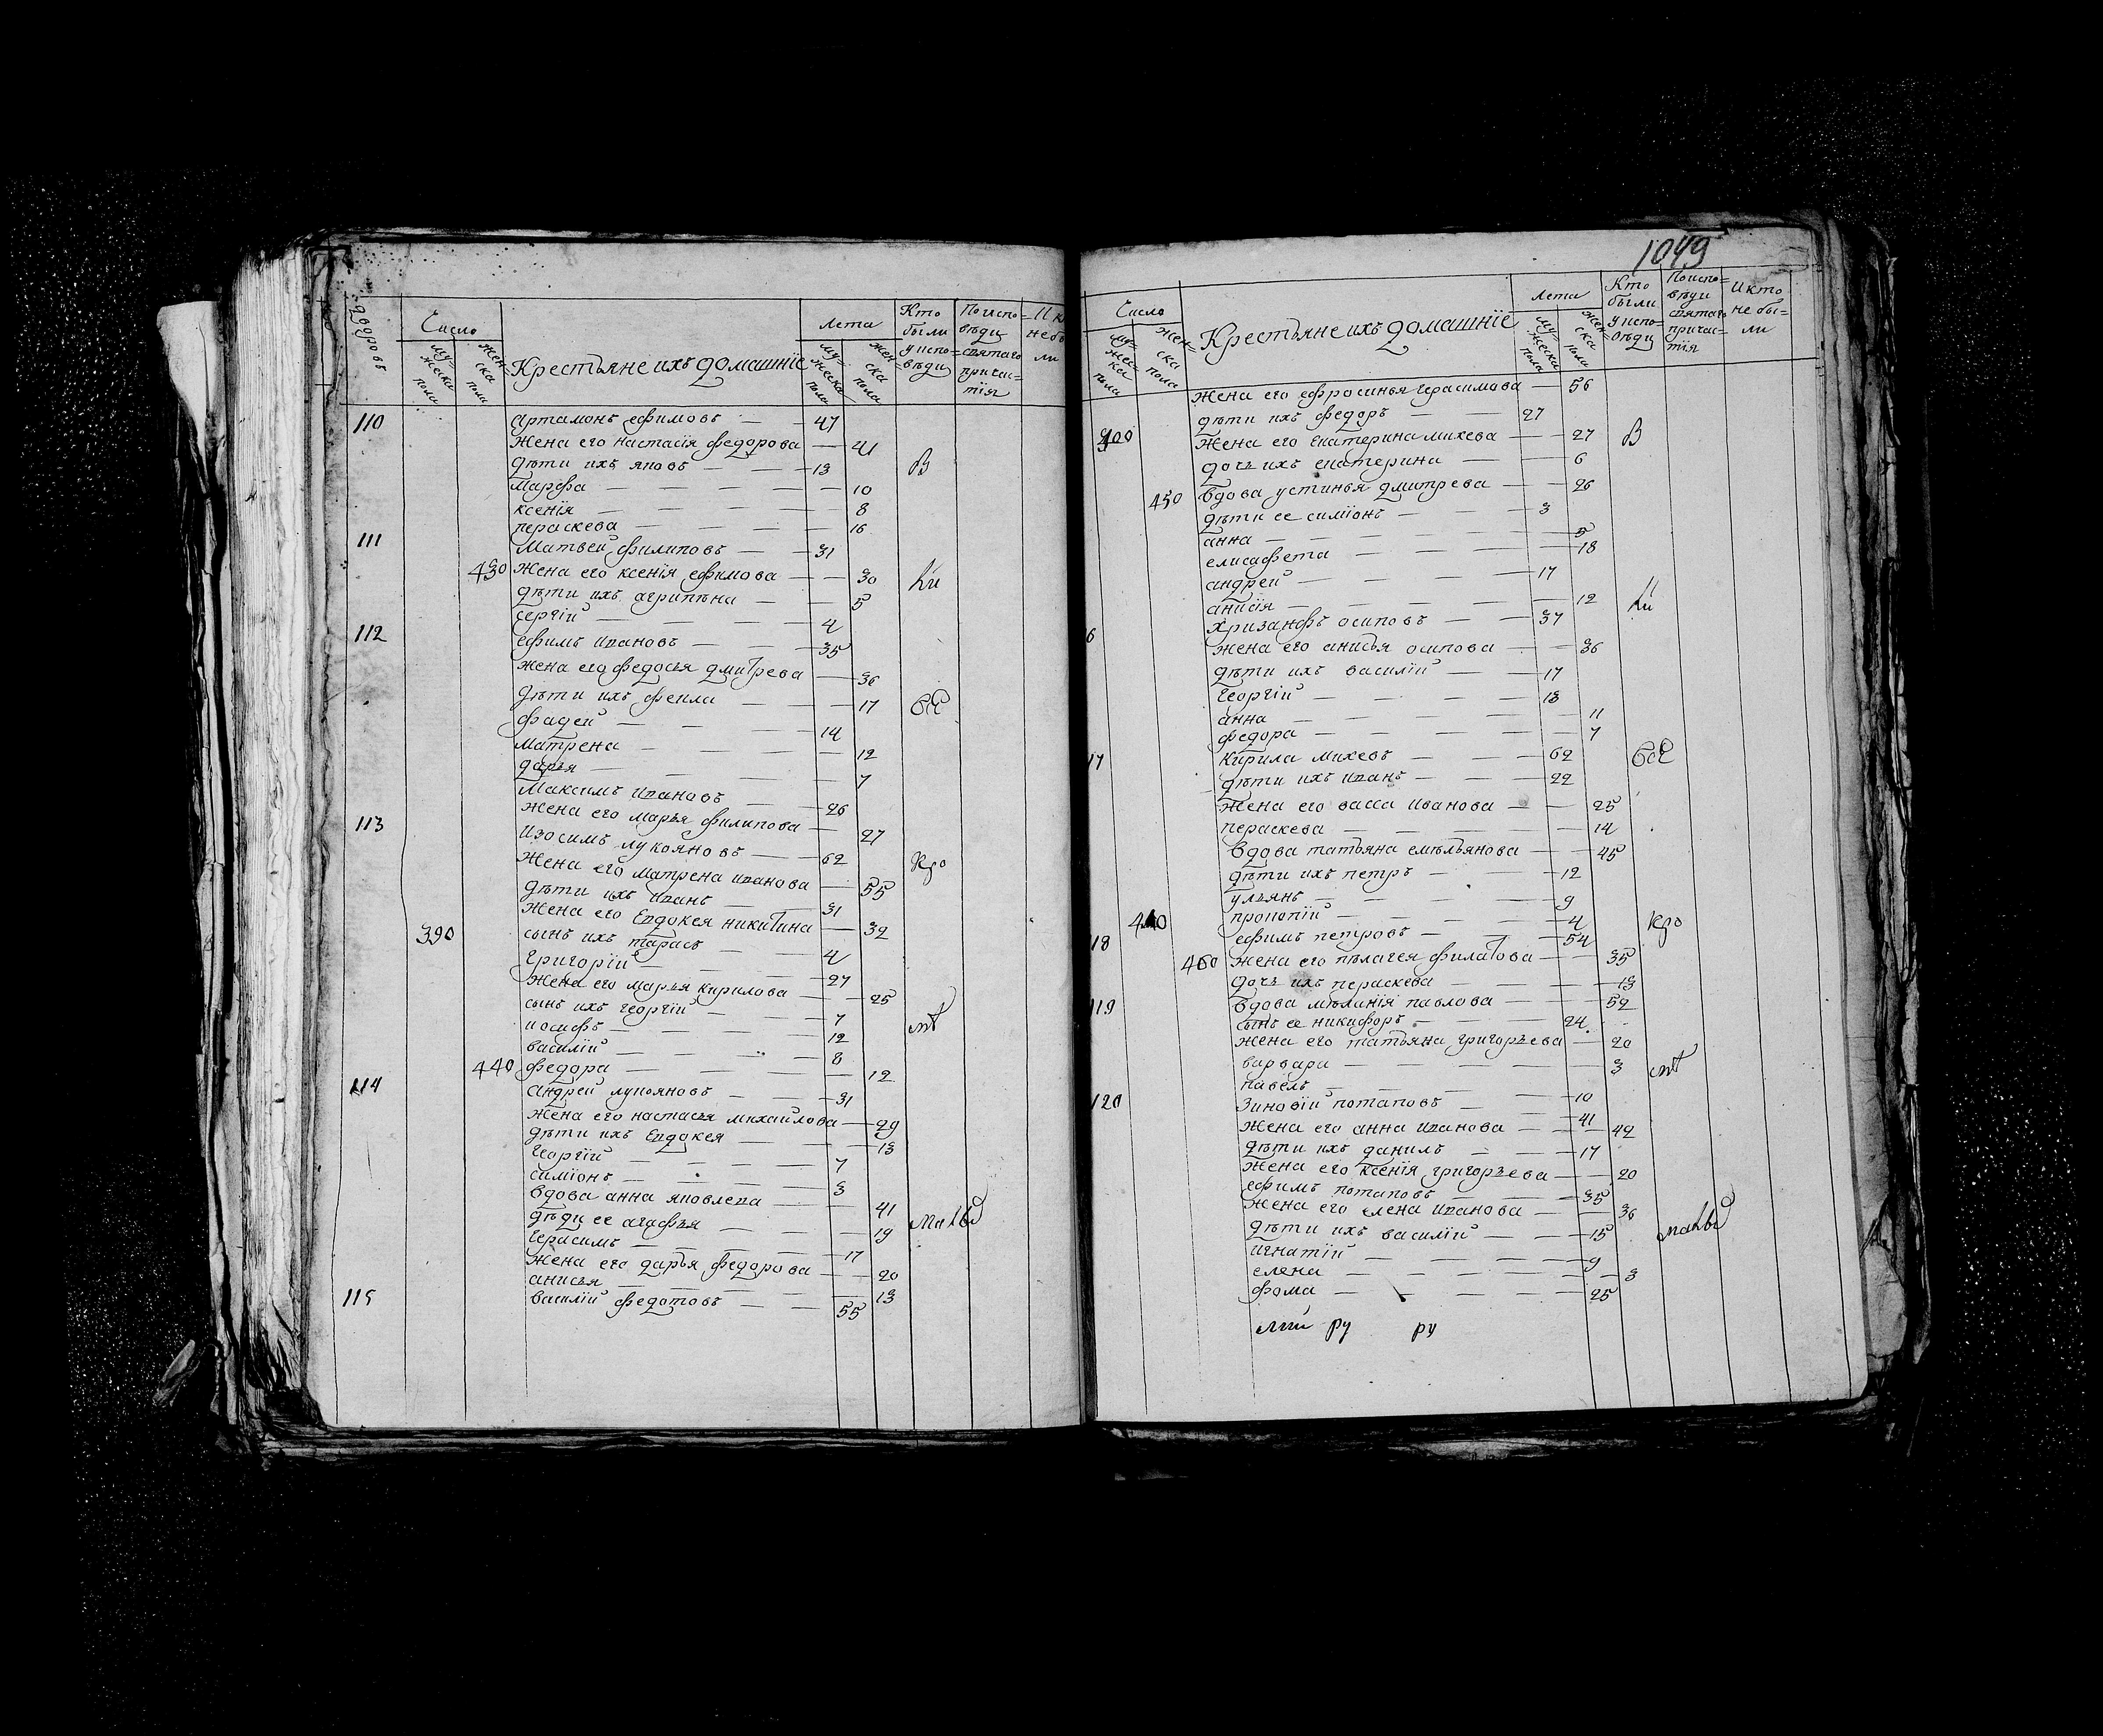 1049
дворовъ
Число
мужеска пола
женска пола
Крестьяне ихъ домашнїе
Лета
мужеска пола
женска пола
Кто были у исповѣди
По исповѣди святаго причастїя
И к не бы ли
110 артамонъ ефимовъ — 47
жена его настасїя федорова — 41
дѣти ихъ яковъ — 13 В
марфа — 10
ксенїя — 8
пераскева — 16
111 Матвей филиповъ — 31
430 жена его ксенїя ефимова — 30
дѣти ихъ агрипѣна — 5
сергїй — 4
112 ефимъ ивановъ — 35
жена его федосья дмитрева — 36
дѣти ихъ фекла — 17 всѣ
фадей — 14
матрена — 12
дарья — 7
Максимъ ивановъ — 26
жена его марья филипова — 27
113 Изосимъ лукояновъ — 62
жена его матрена иванова — 55
дѣти ихъ иванъ — 31
жена его Евдокея никитина — 32
390 сынъ ихъ тарасъ — 4
григорїй — 27
жена его марья кирилова — 25
сынъ ихъ георгїй — 7
иосифъ — 12
василїй — 8
440 федора — 12
114 андрей лукояновъ — 31
жена его настасья михайлова — 29
дѣти ихъ Евдокея — 13
георгїй — 7
симїонъ — 3
вдова анна яковлева — 41
дѣти ее агафья — 19
герасимъ — 17
жена его дарья федорова — 20
анисья — 13
115 василїй федотовъ — 55
Число
мужеска пола
женска пола
Крестьяне ихъ домашнїе
Лета
мужеска пола
женска пола
Кто были у исповѣди
По исповѣди святаго причастїя
И кто не были
жена его ефросинья герасимова — 56
дѣти ихъ федоръ — 27
400 жена его екатерина михева — 27 В
дочь ихъ екатерина — 6
450 вдова устинья дмитрева — 26
дѣти ее симїонъ — 3
анна — 5
елисафета — 18
андрей — 17
анисїя — 12
6 хризанфъ осиповъ — 37
жена его анисья осипова — 36
дѣти ихъ василїй — 17
георгїй — 13
анна — 11
федора — 7
17 кирила михевъ — 62 всѣ
дѣти ихъ иванъ — 22
жена его васса иванова — 25
пераскева — 14
вдова татьяна емѣльянова — 45
дѣти ихъ петръ — 12
ульянъ — 9
410 прокопїй — 4
18 ефимъ петровъ — 54
460 жена его пѣлагея филатова — 35
дочь ихъ пераскева — 13
119 вдова мѣланїя павлова — 52
сынъ ее никифоръ — 24
жена его татьяна григорьева — 20
варвара — 3
павелъ — 10
120 Зиновїй потаповъ — 41
жена его анна иванова — 42
дѣти ихъ данилъ — 17
жена его ксенїя григорьева — 20
ефимъ потаповъ — 35
жена его елена иванова — 36
дѣти ихъ василїй — 15
игнатїй — 9
елена — 3
фома — 25
ру ру